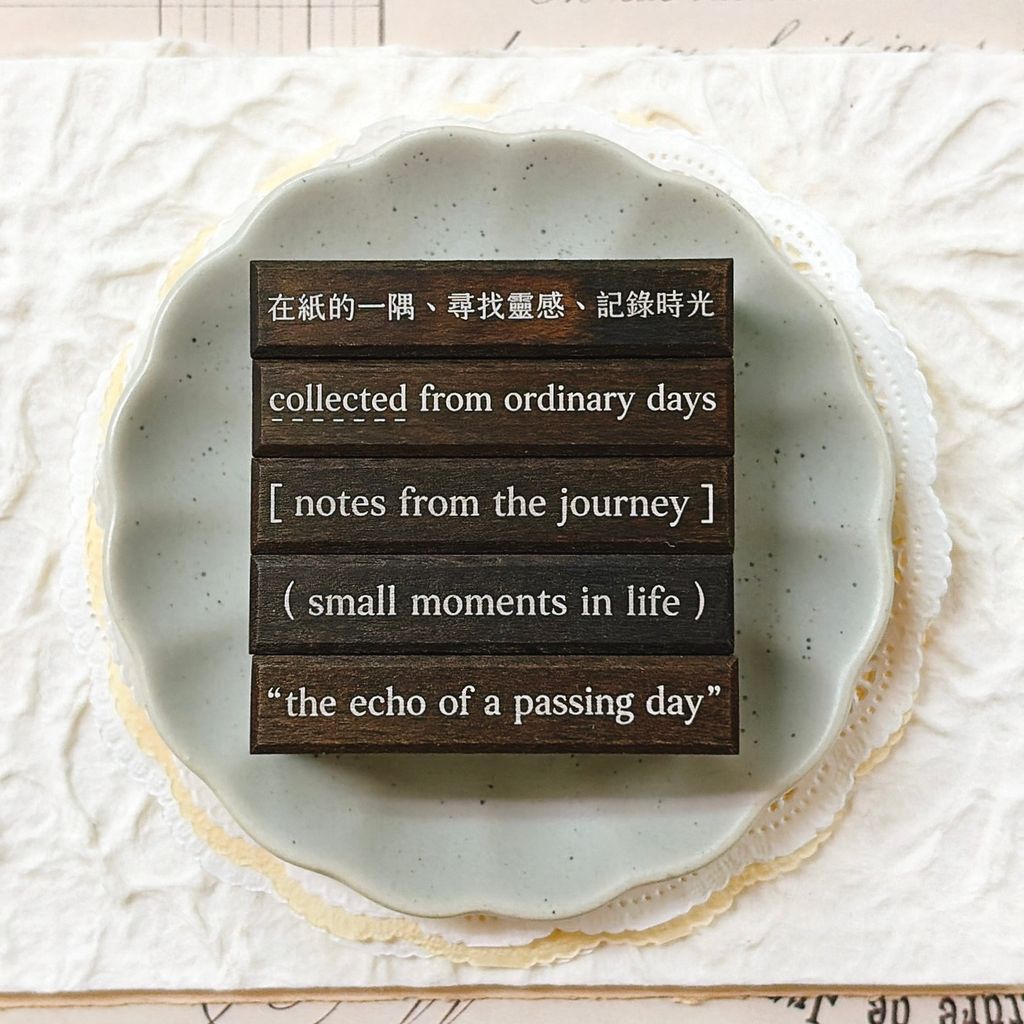 在紙的一隅、尋找靈感、記錄時光
collected from ordinary days
[ notes from the journey ]
( small moments in life )
“the echo of a passing day”